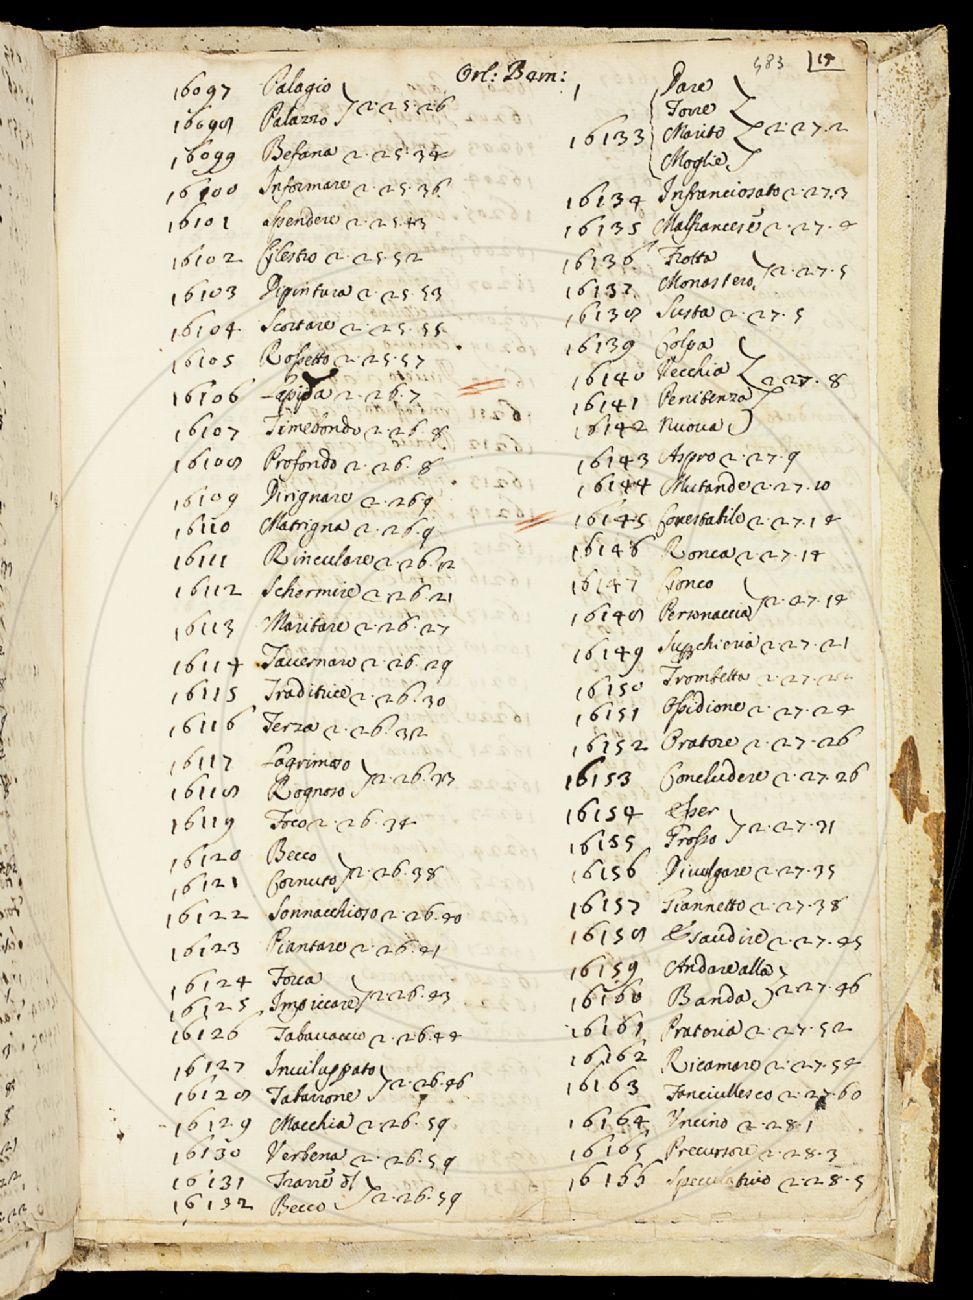 Orl: Bam:
483 19
16097 Palagio
16098 Palazzo } 2. 25. 26
16099 Befana 2. 25. 34
16100 Informare 2. 25. 36
16101 Spendere 2. 25 43
16102 Cilestro 2. 25. 52
16103 Dipintura 2. 25. 53
16104 Scortare 2. 25. 55
16105 Rossetto 2. 25. 57
16106 Lepida 2. 26. 7
16107 Timebondo 2. 26. 8
16108 Profondo 2. 26. 8
16109 Dirignare 2. 26 9
16110 Matrigna 2. 26. 9
16111 Rinculare 2. 26. 12
16112 Schermire 2. 26. 21
16113 Maritare 2. 26. 27
16114 Tavernaro 2. 26. 29
16115 Traditrice 2. 26. 30
16116 Terza 2. 26. 32
16117 Lagrimoso
16118 Rognoso } 2. 26. 33
16119 Foco 2. 26. 34
16120 Becco
16121 Cornuto } 2. 26. 38
16122 Sonnacchioso 2. 26. 40
16123 Piantare 2. 26. 41
16124 Forca
16125 Impiccare } 2. 26. 43
16126 Tabaccaccio 2. 26. 44
16127 Inviluppato
16128 Tabarrone } 2. 26. 46
16129 Macchia 2. 26. 59
16130 Verbena 2. 26. 59
16131
16132 Becco } 2. 26. 59
Pare
Torre
16133 Marito } 2. 27. 2
Moglie
16134 Infranciosato 2. 27. 3
16135 Malfrancese 2. 27. 4
16136 Frotta
16137 Monastero } 2. 27. 5
16138 Susta 2. 27. 5
16139 Colpa
16140 Vecchia
16141 Penitenza } 2. 27. 8
16142 Nuova
16143 Aspro 2. 27. 9
16144 Mutande 2. 27. 10
16145 Conestabile 2. 27. 14
16146 Ronca 2. 27. 14
16147 Gonco
16148 Personaccia } 2. 27. 14
16149 Supchieria 2. 27. 21
16150 Trombetta 2. 27.
16151 Ossidione 2. 27. 24
16152 Oratore 2. 27. 26
16153 Concludere 2. 27. 26
16154 Esser
16155 Grosso } 2. 27. 31
16156 Divulgare 2. 27. 35
16157 Giannetto 2. 27. 38
16158 Esaudire 2. 27. 45
16159 Andare alla
16160 Banda } 2. 27. 46
16161 Pratoria 2. 27. 52
16162 Ricamare 2. 27. 54
16163 Fanciullesco 2. 27. 60
16164 Uncino 2. 28. 1
16165 Precursore 2. 28. 3
16166 Speculativo 2. 28. 5